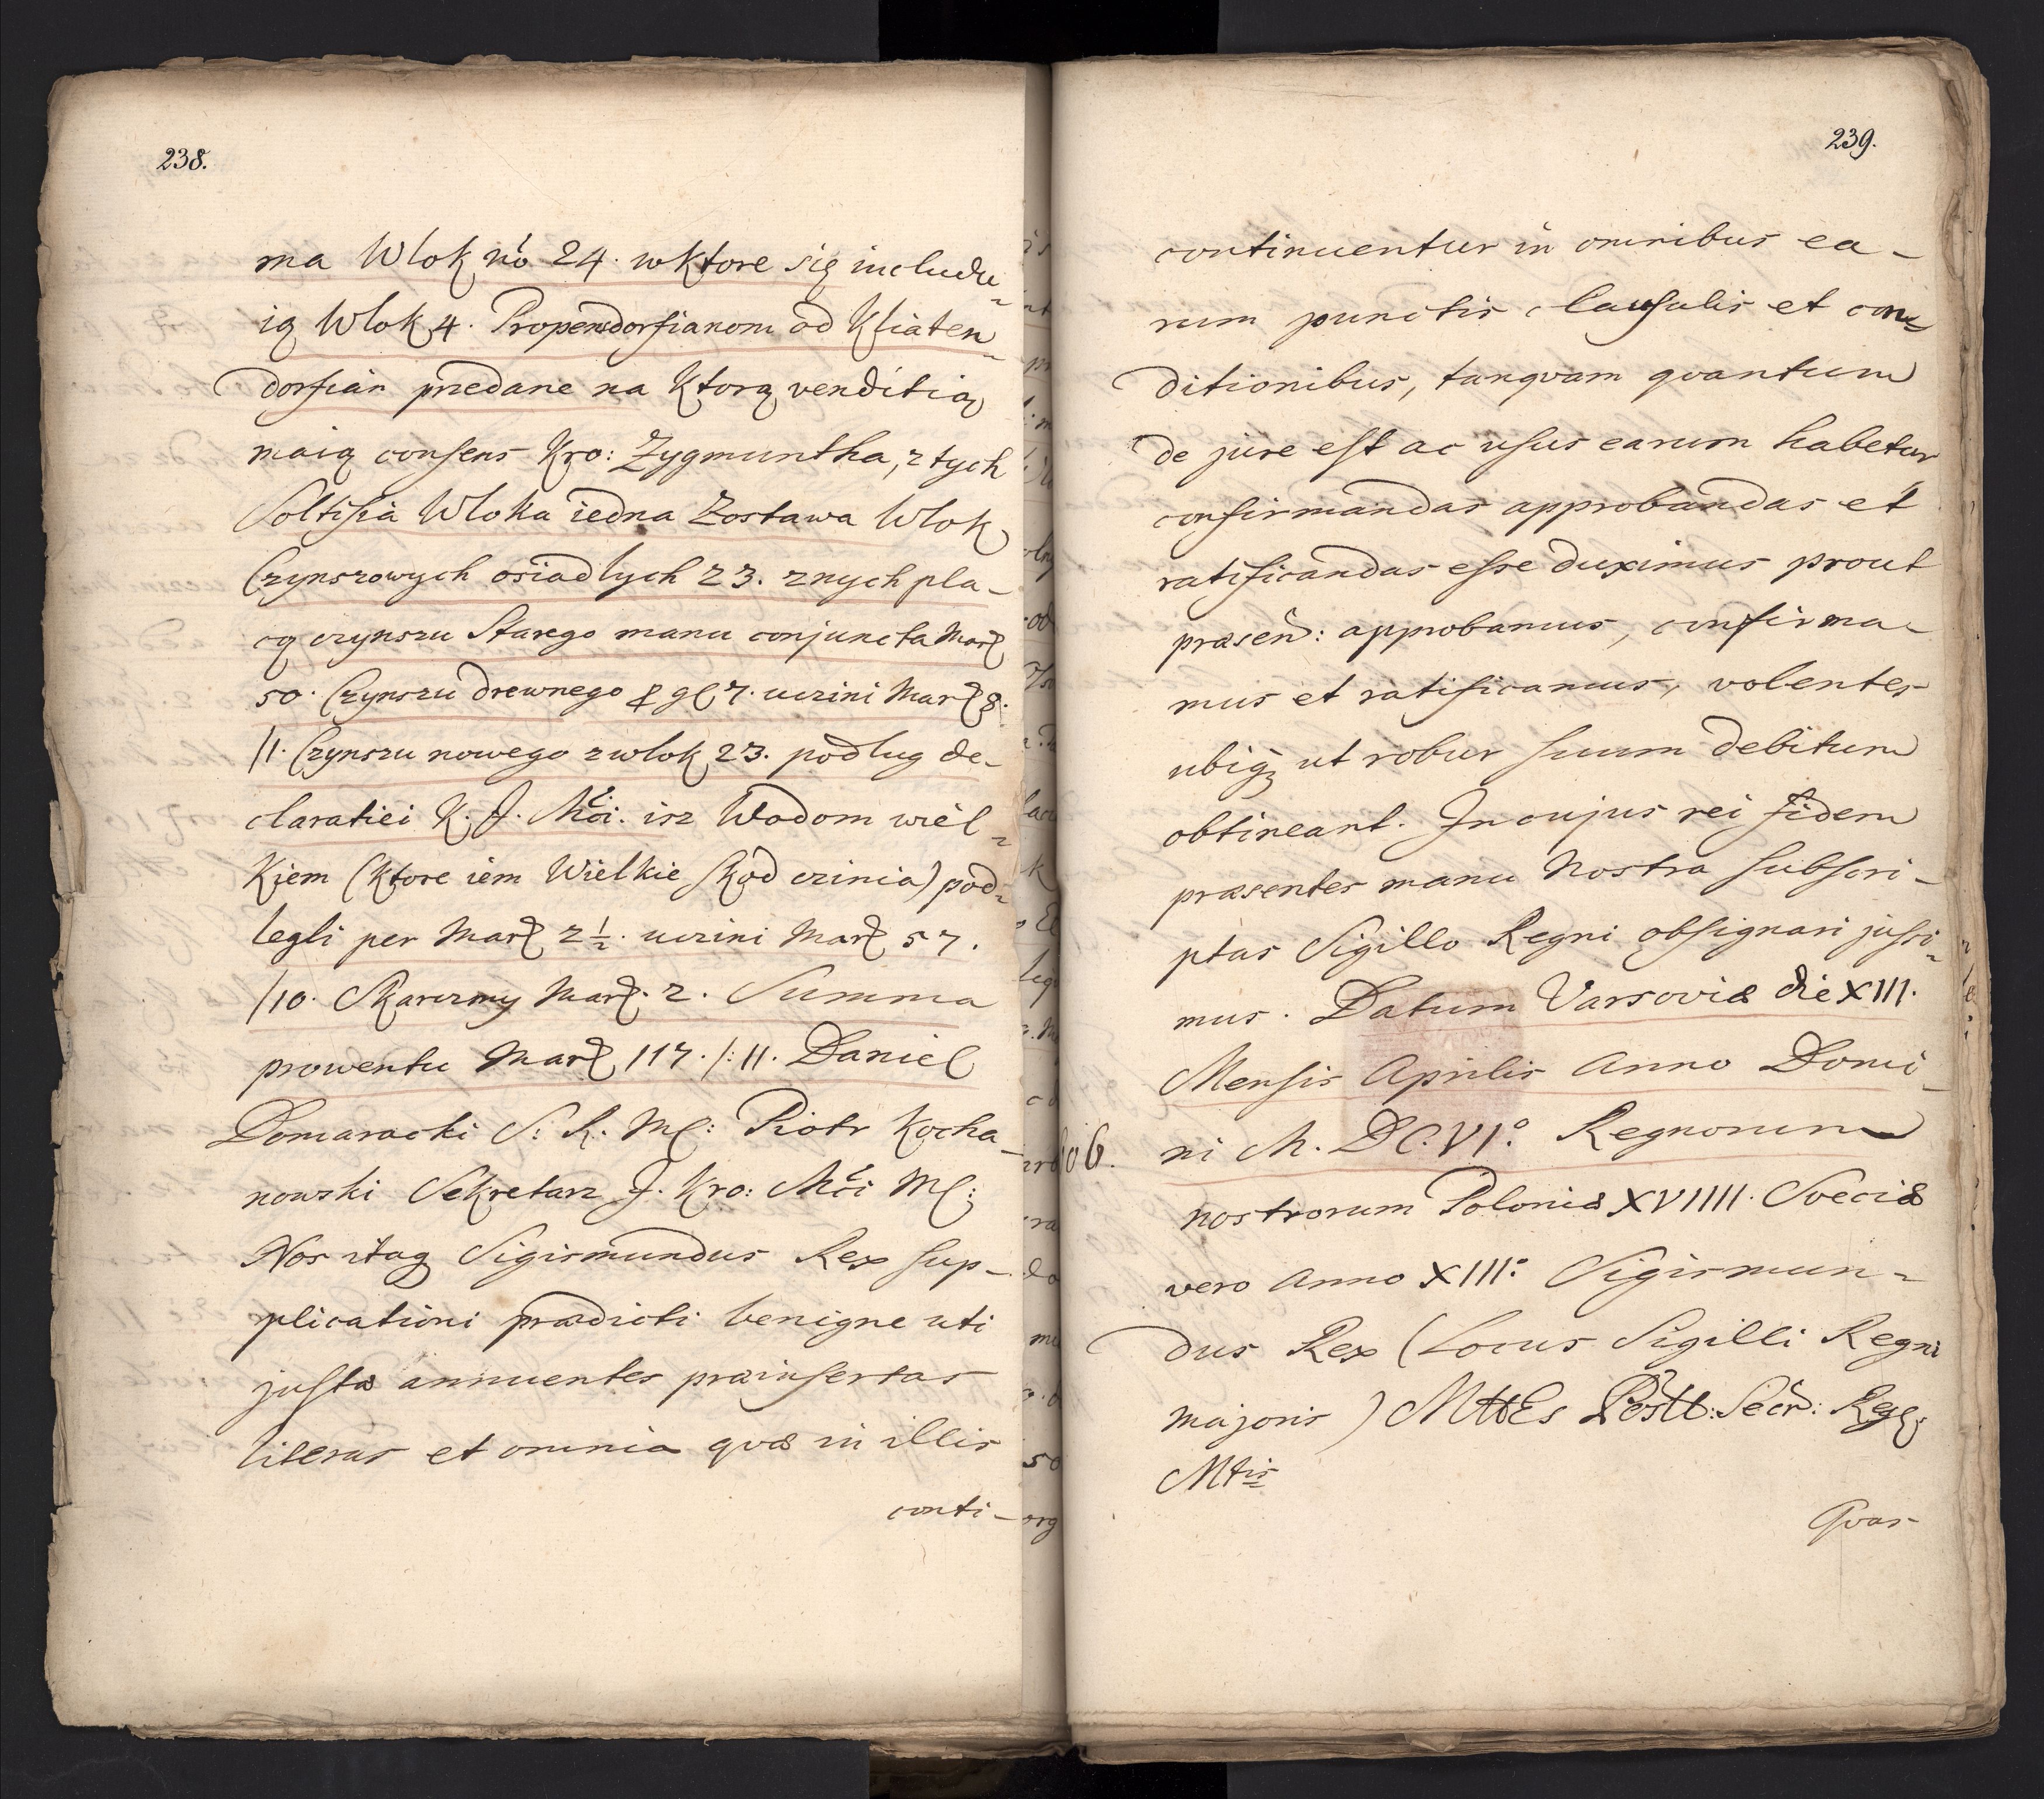 238.
ma Wlok no 24. wktore się includu-
ią Wlok 4. Propendorfianom od Kliaten-
dorfian przedane na Ktorą venditią
maią consens Kro: Zygmuntha, z tych
Soltisia Wloka iedna Zostawa Wlok
Czynszowych osiadlych 23. znych pla-
cą czynszu Starego manu conjuncta Mar
50. Czynszu drewnego gl 7. uczini Mar 8.
/1. Czynszu nowego zwlok 23. podlug de-
claratiei K. J. Mći. isz Wodom wiel-
Kiem (Ktore iem Wielkie Skod czinia) pod-
legli per Mar 2½. uczini Mar 57.
/10. Skarczmy Mar. 2. Summa
prowentu Mar 117. /: 11. Daniel
Domaracki S. R. Mć: Piotr Kocha-
nowski Sekretarz J. Kro: Mći Mć:
Nos itaq Sigismundus Rex sup-
plicationi prædicti benigne uti
justæ annuentes præinsertas
literas et omnia qvæ in illis
conti-
239.
continuentur in omnibus ea-
rum punctis clausulis et con-
ditionibus, tanqvam qvantum
de jure est ac usus earum habetur
confirmandas approbandas et
ratificandas esse duximus prout
præsen: approbamus, confirma-
mus et ratificamus, volentes
ubiq ut robur suum debitum
obtineant. In cujus rei fidem
præsentes manu Nostra subscri-
ptas Sigillo Regni obsignari jussi-
mus. Datum Varsoviæ die XIII.
Mensis Aprilis Anno Domi-
ni M. DC. VI.° Regnorum
nostrorum Poloniæ XVIIII. Sveciæ
vero Anno XIII.° Sigismun-
dus Rex (Locus Sigilli Regni
majoris) Secr: Reg:
Mtis
Qvas